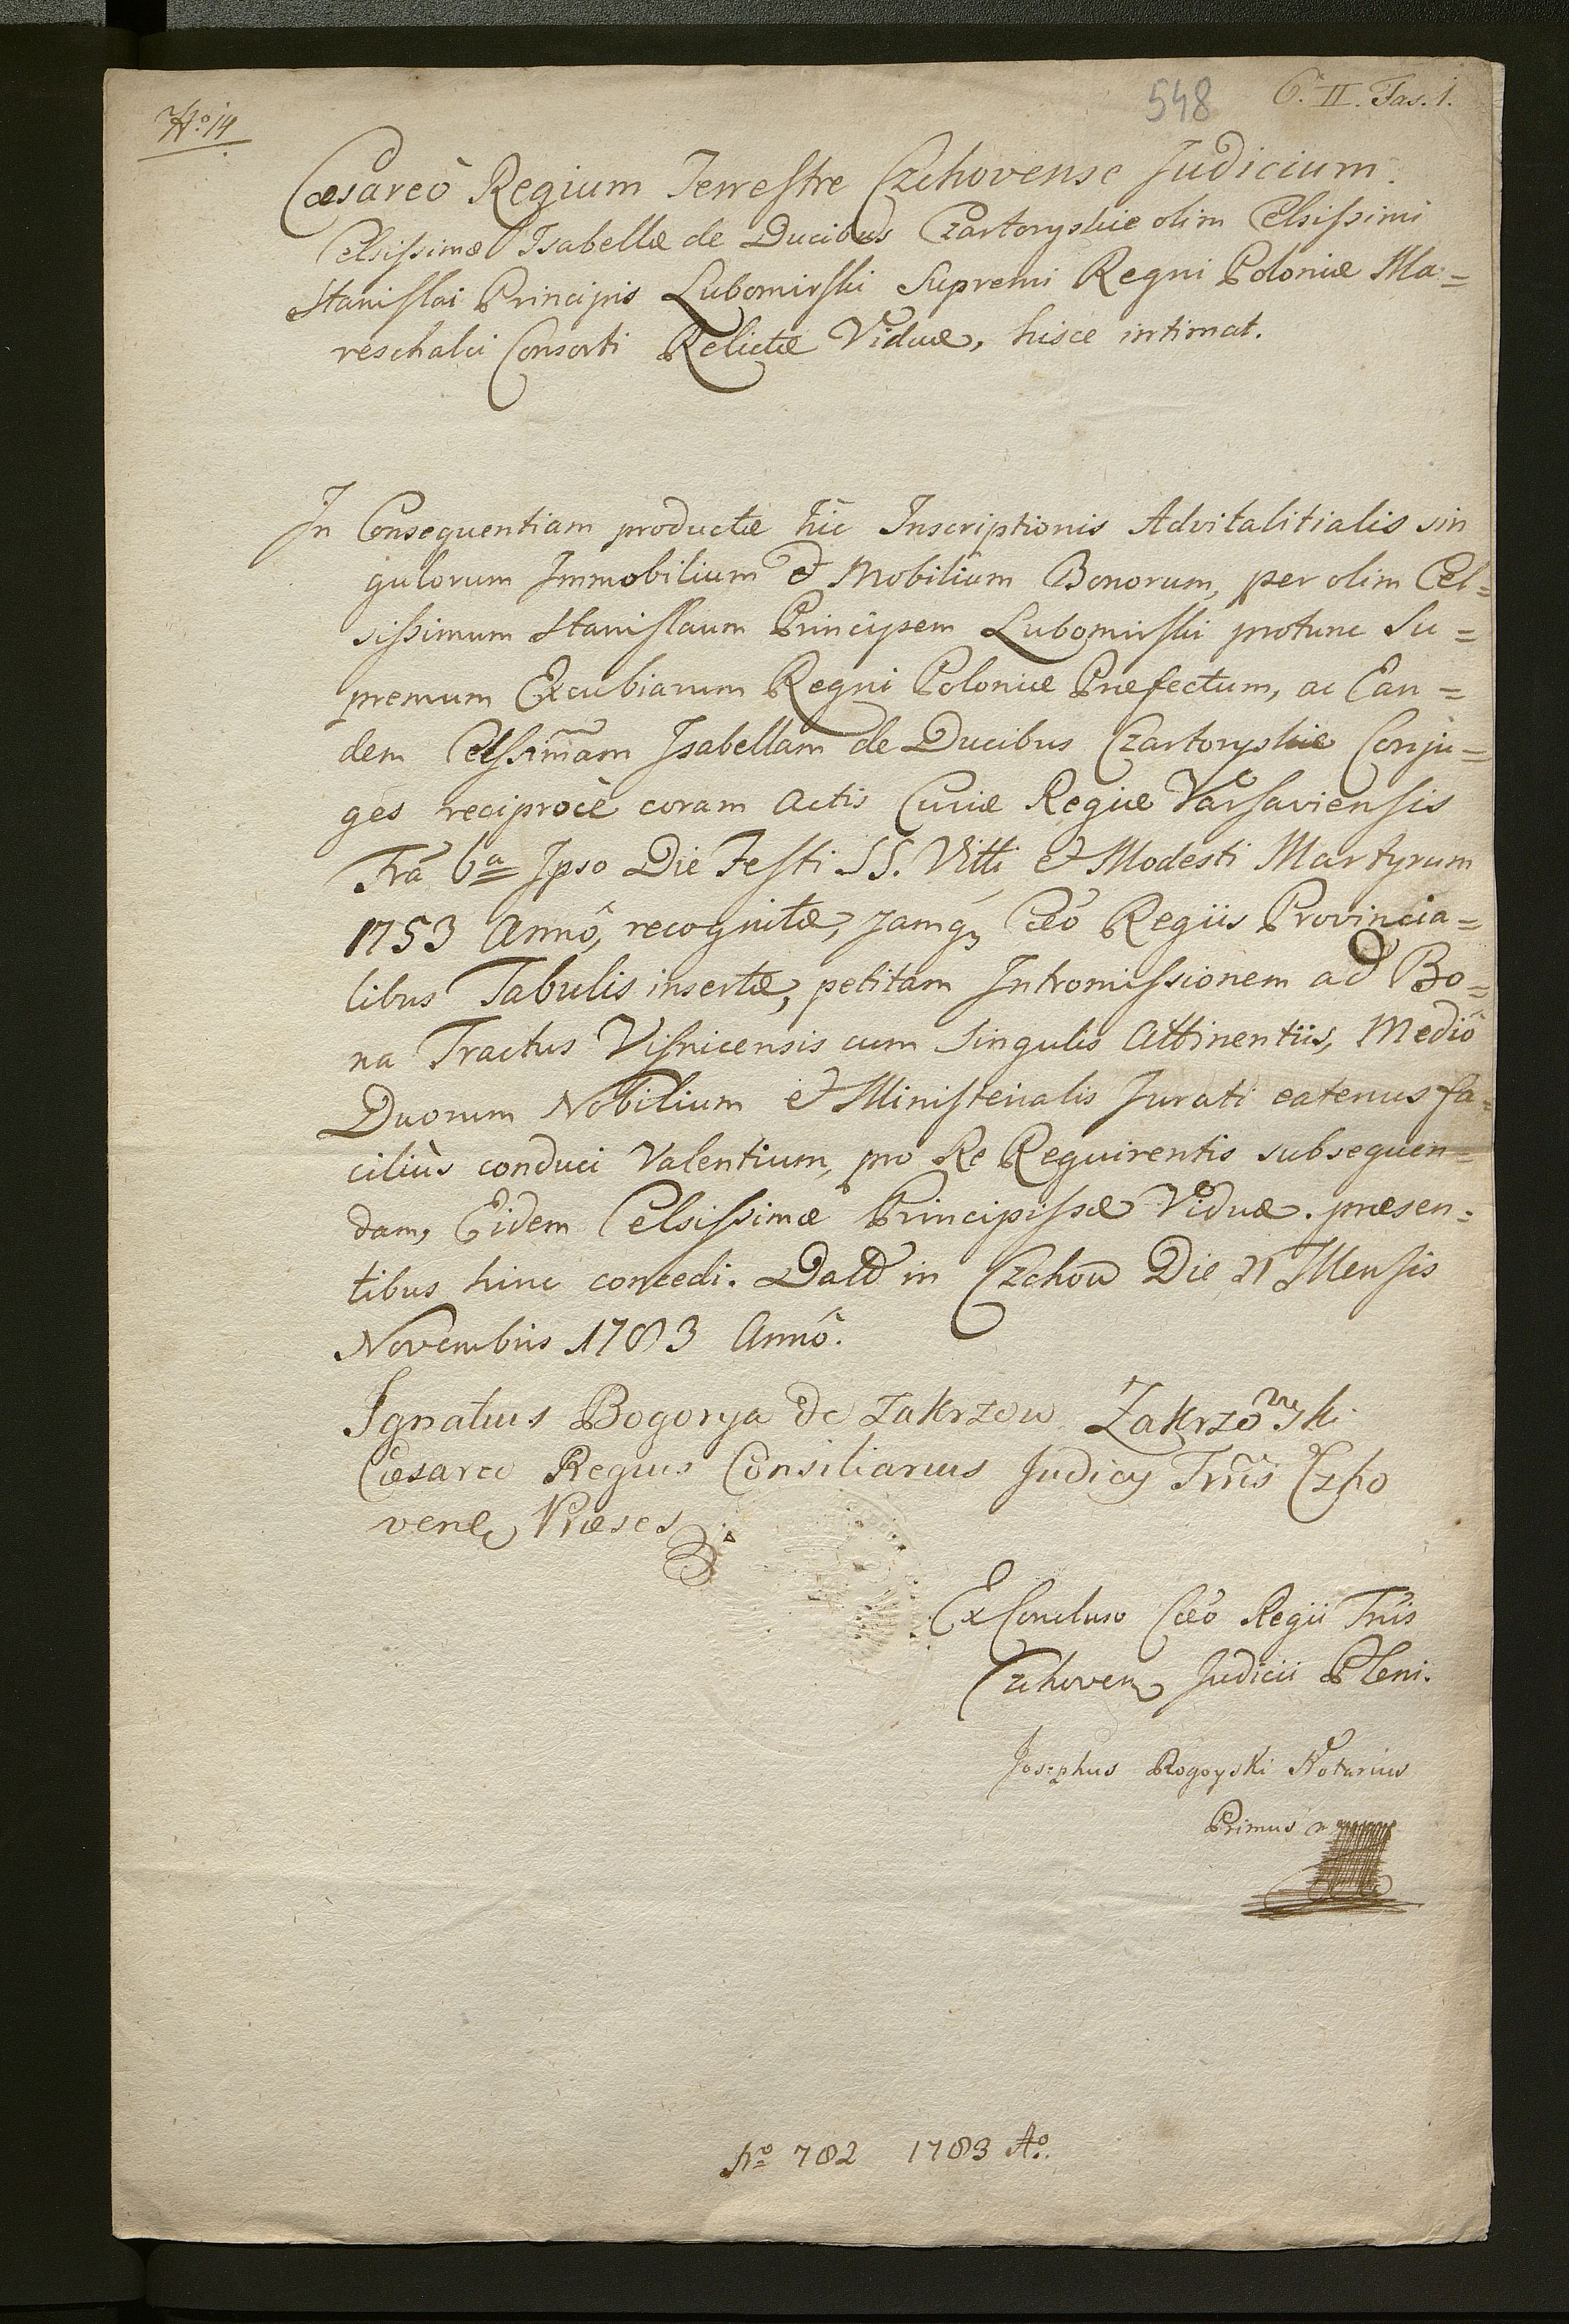 No. 14
548
6. II. Fas. 1.
Cæsareô Regium Terrestre Czchovense Judicium.
Celsissimæ Isabellæ de Ducibus Czartoryskie olim Celsissimi
Stanislai Principis Lubomirski Supremi Regni Poloniæ Ma=
reschalci Consorti Relictæ Viduæ, hisce intimat.
In Consequentiam productæ hìc Inscriptionis Advitalitialis sin
gulorum Immobilium & Mobilium Bonorum, per olim Cel=
sissimum Stanislaum Principem Lubomirski protunc Su=
premum Excubiarum Regni Poloniæ Præfectum, ac Ean=
dem Celssimãm Isabellam de Ducibus Czartoryskie Conju=
ges reciprocè coram Actis Curiæ Regiæ Varsaviensis
Frã 6a Ipso Die Festi SS. Vitti & Modesti Martyrum
1753 Annô, recognitæ, jamq3 Cæô Regiis Provincia=
libus Tabulis insertæ, petitam Intromissionem ad Bo=
na Tractus Visnicensis cum Singulis Attinentiis, Mediô
Duorum Nobilium & Ministerialis Jurati eatenus fa=
ciliùs conduci Valentium, pro Re Requirentis subsequen=
dam, Eidem Celsissimæ Principissæ Viduæ. præsen=
tibus hinc concedi. Datt in Czchow Die 21 Mensis
Novembris 1783 Annô.
Ignatius Bogorya de Zakrzow Zakrzowski
Cæsareo Regius Consiliarius Judicy Trris Czho
vens Præses
Ex Concluso Cæô Regii Trris
Czchoven Judicii Pleni.
Josephus Rogoyski Notarius
Primus
No 782 1783 Ao.